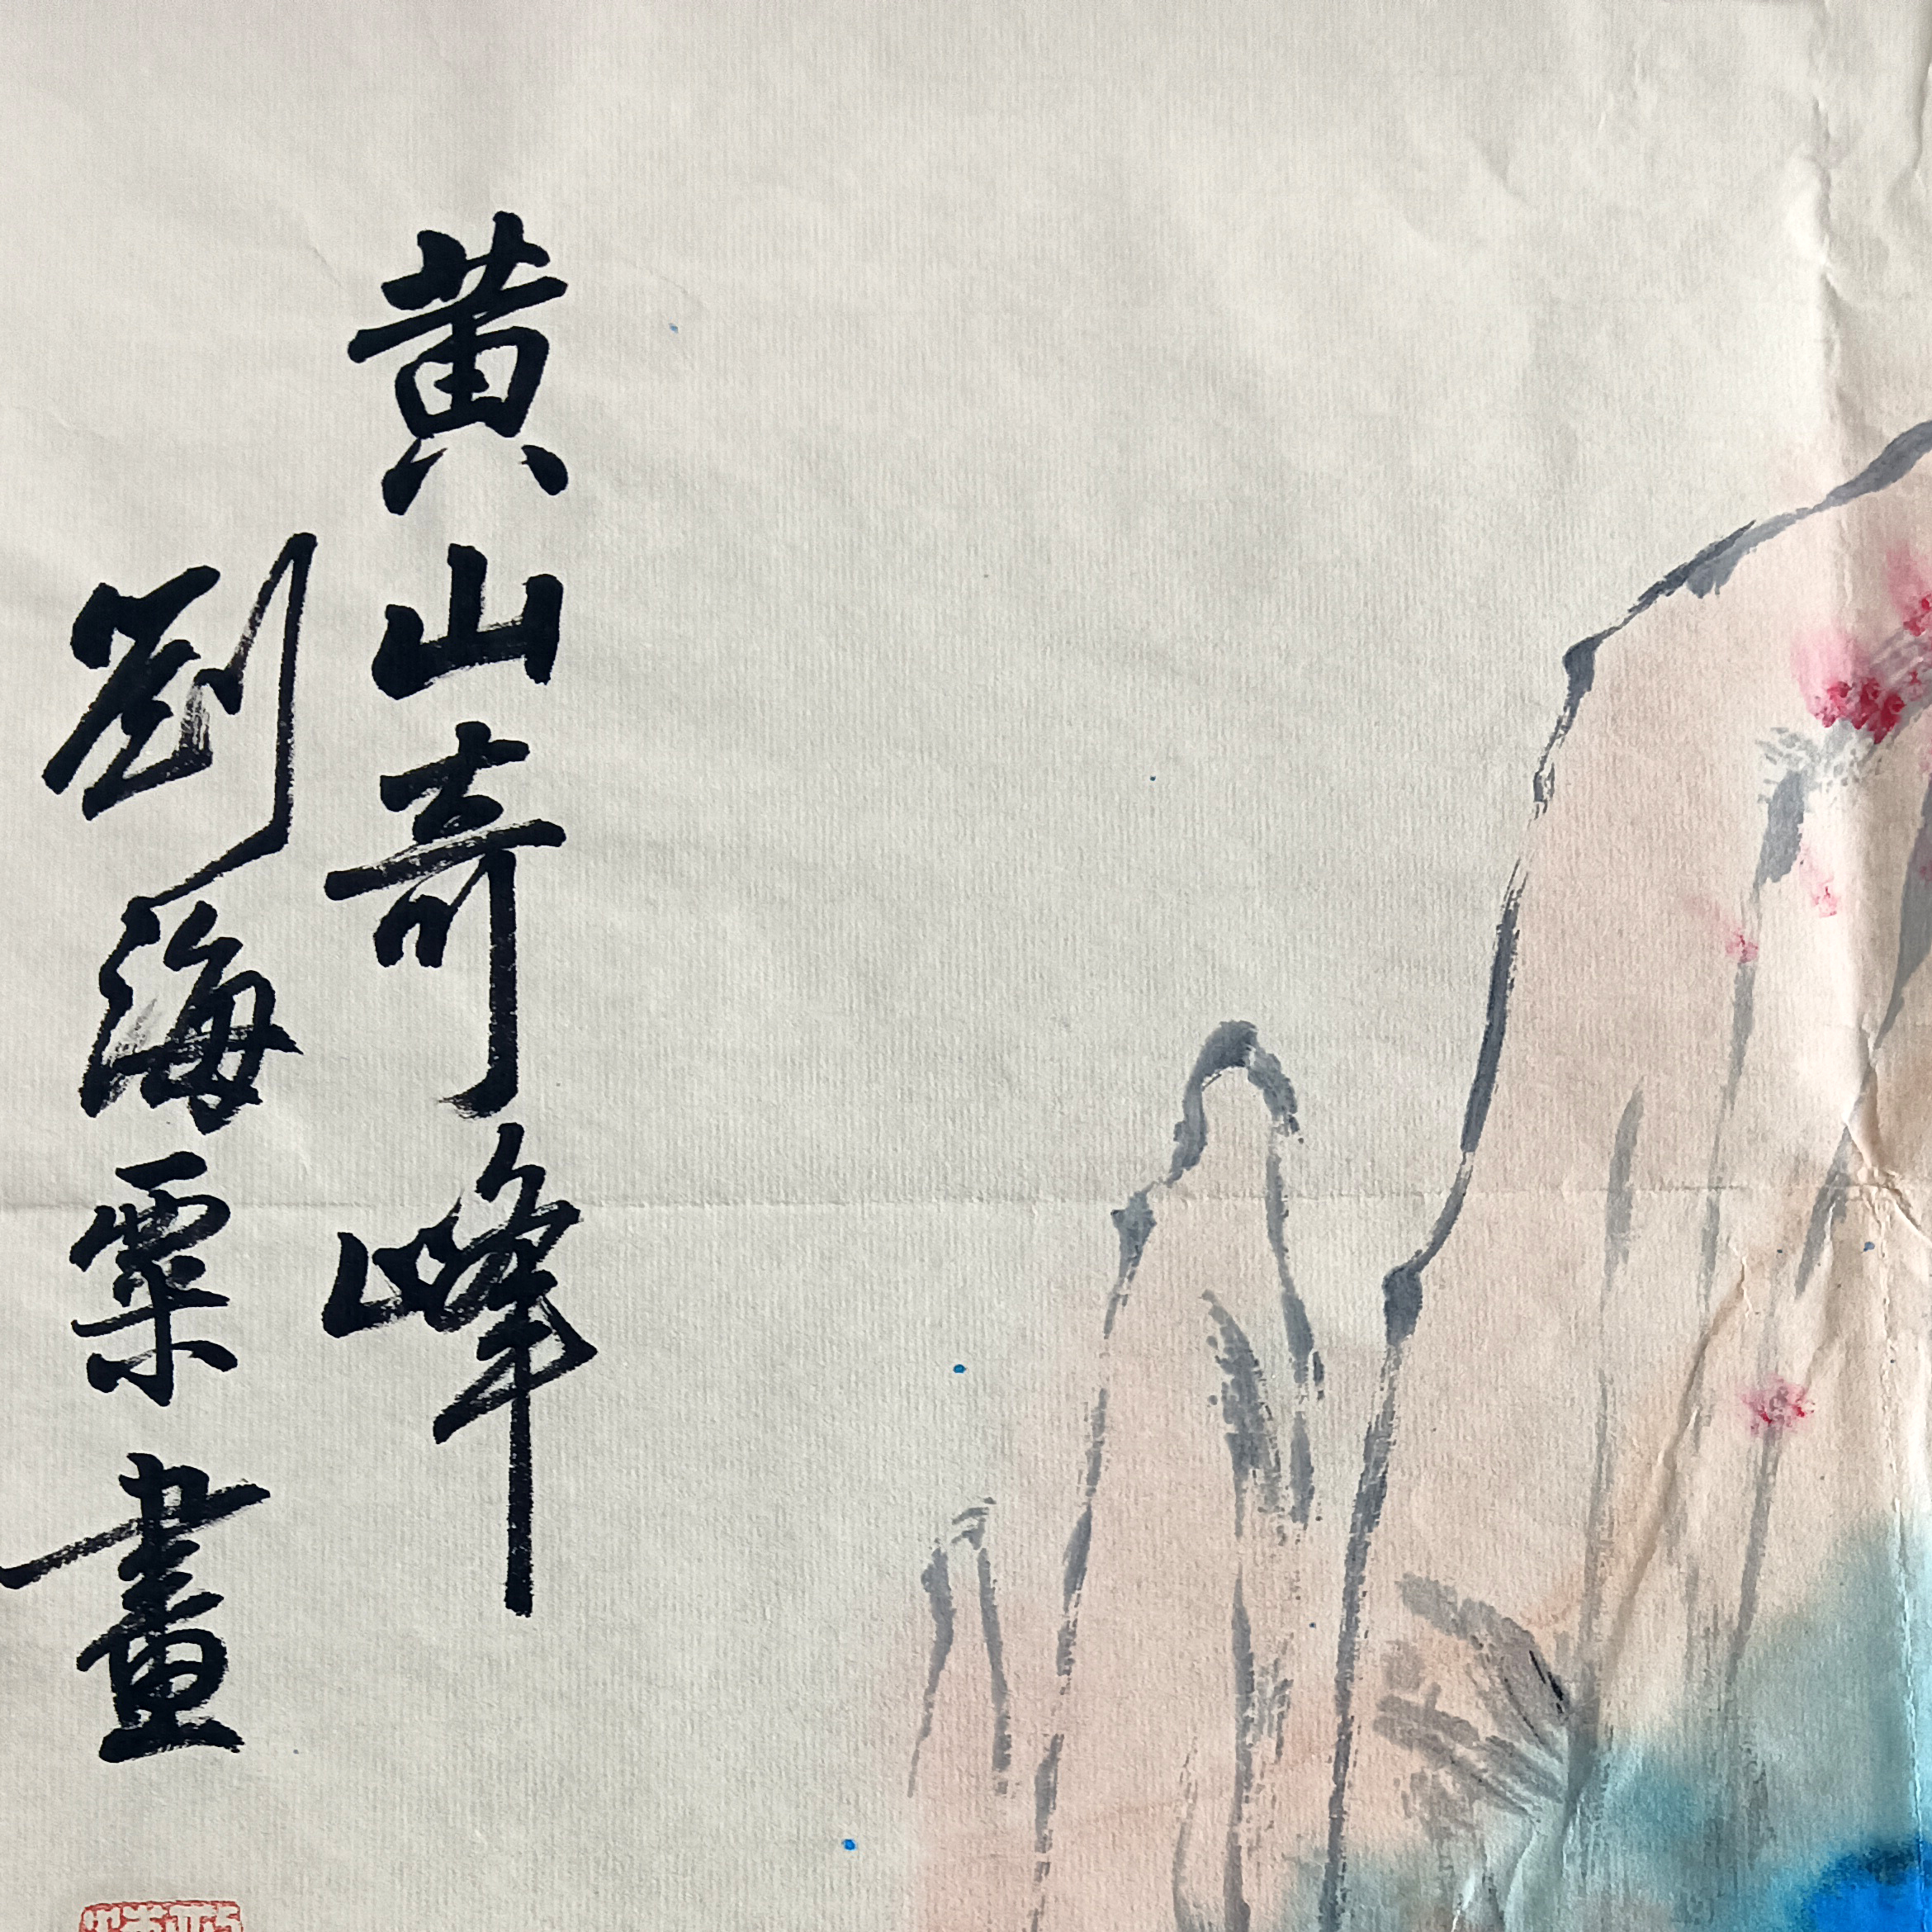 黄山奇峰
劉海粟畫